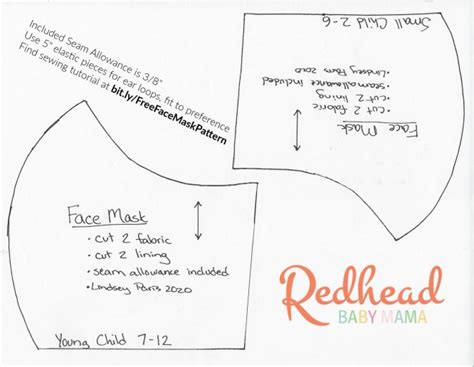 Included Seam Allowance is 3/8"
Use 5" elastic pieces for ear loops, fit to preference
Find sewing tutorial at bit.ly/FreeFaceMaskPattern
Small Child 2-6
Face Mask
• cut 2 fabric
• cut 2 lining
• seam allowance included
• Lindsey Paris 2020
Face Mask
• cut 2 fabric
• cut 2 lining
• seam allowance included
• Lindsey Paris 2020
Young Child 7-12
Redhead
BABY MAMA